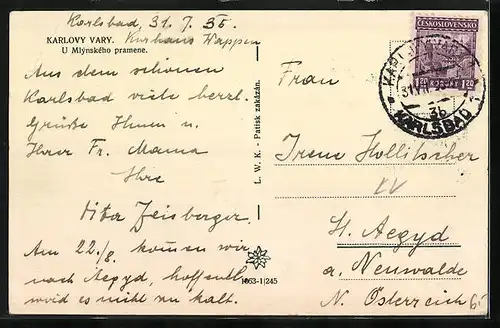 Karlsbad, 31. 7. 35.
KARLOVY VARY. Kurhaus Wappen
U Mlýnského pramene.
Aus dem schönen
Karlsbad viele herzl.
Grüße Ihnen u.
Ihrer Fr. Mama
Ihre
Zeisberger.
Am 22./8. kommen wir
nach Aegyd, hoffentl.
wird es nicht zu kalt.
L. W. K. - Patisk zakázán.
1063-1/245
ČESKOSLOVENSKO
1.20 1.20
KARLOVY VARY
3b
KARLSBAD
Frau
Irene Hollitscher
St. Aegyd
a. Neuwalde
N. Österreich